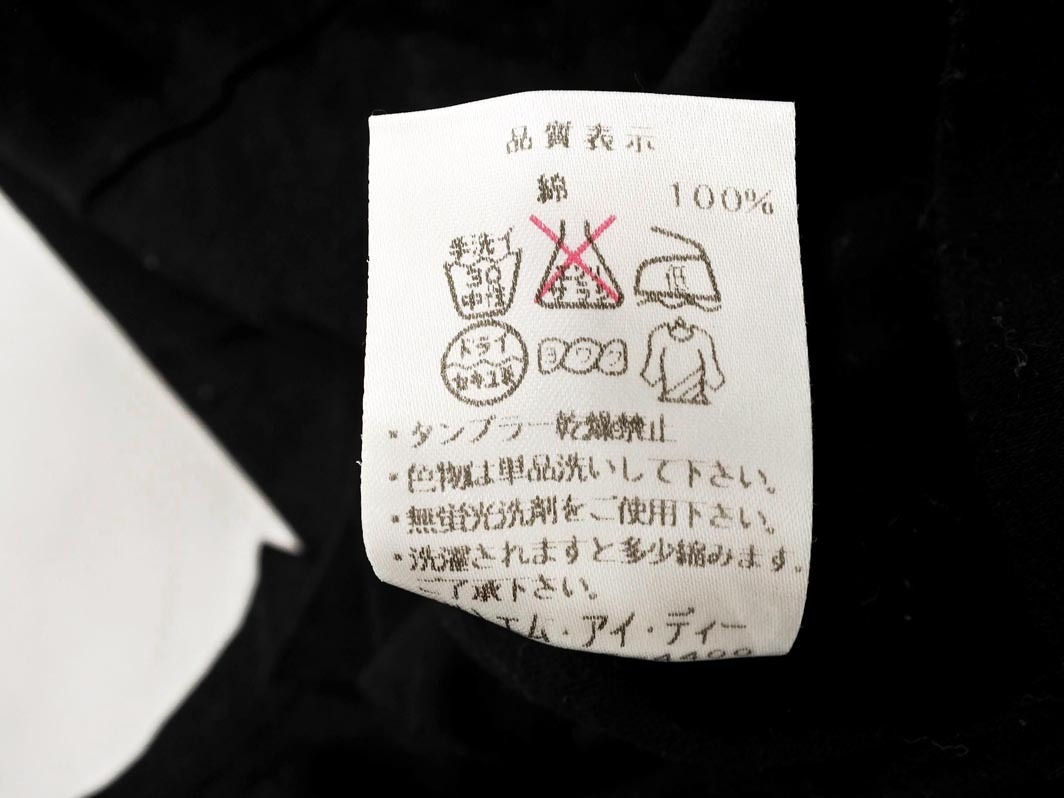 品質表示
綿 100%
手洗イ
30
中性
エンソ
サラシ
低
ドライ
セキユ系
ヨワク
・タンブラー乾燥禁止
・色物は単品洗いして下さい。
・無蛍光洗剤をご使用下さい。
・洗濯されますと多少縮みます。
ご了承下さい。
エム・アイ・ディー